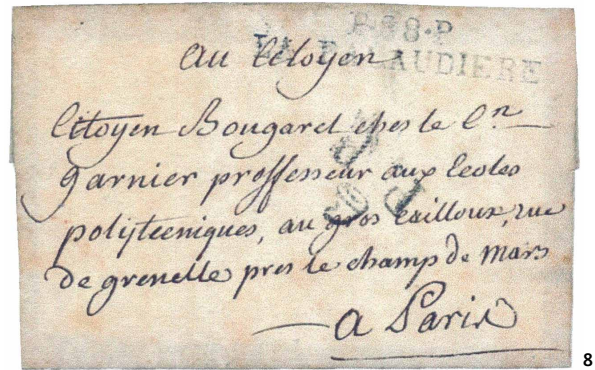 P.88.P
LA PACAUDIERE
au Citoyen
Citoyen Bougaret ches le C.n
garnier proffesseur aux Ecoles
politecniques, au gros Cailloux, rue
de grenelle pres le champ de mars
a Paris
8